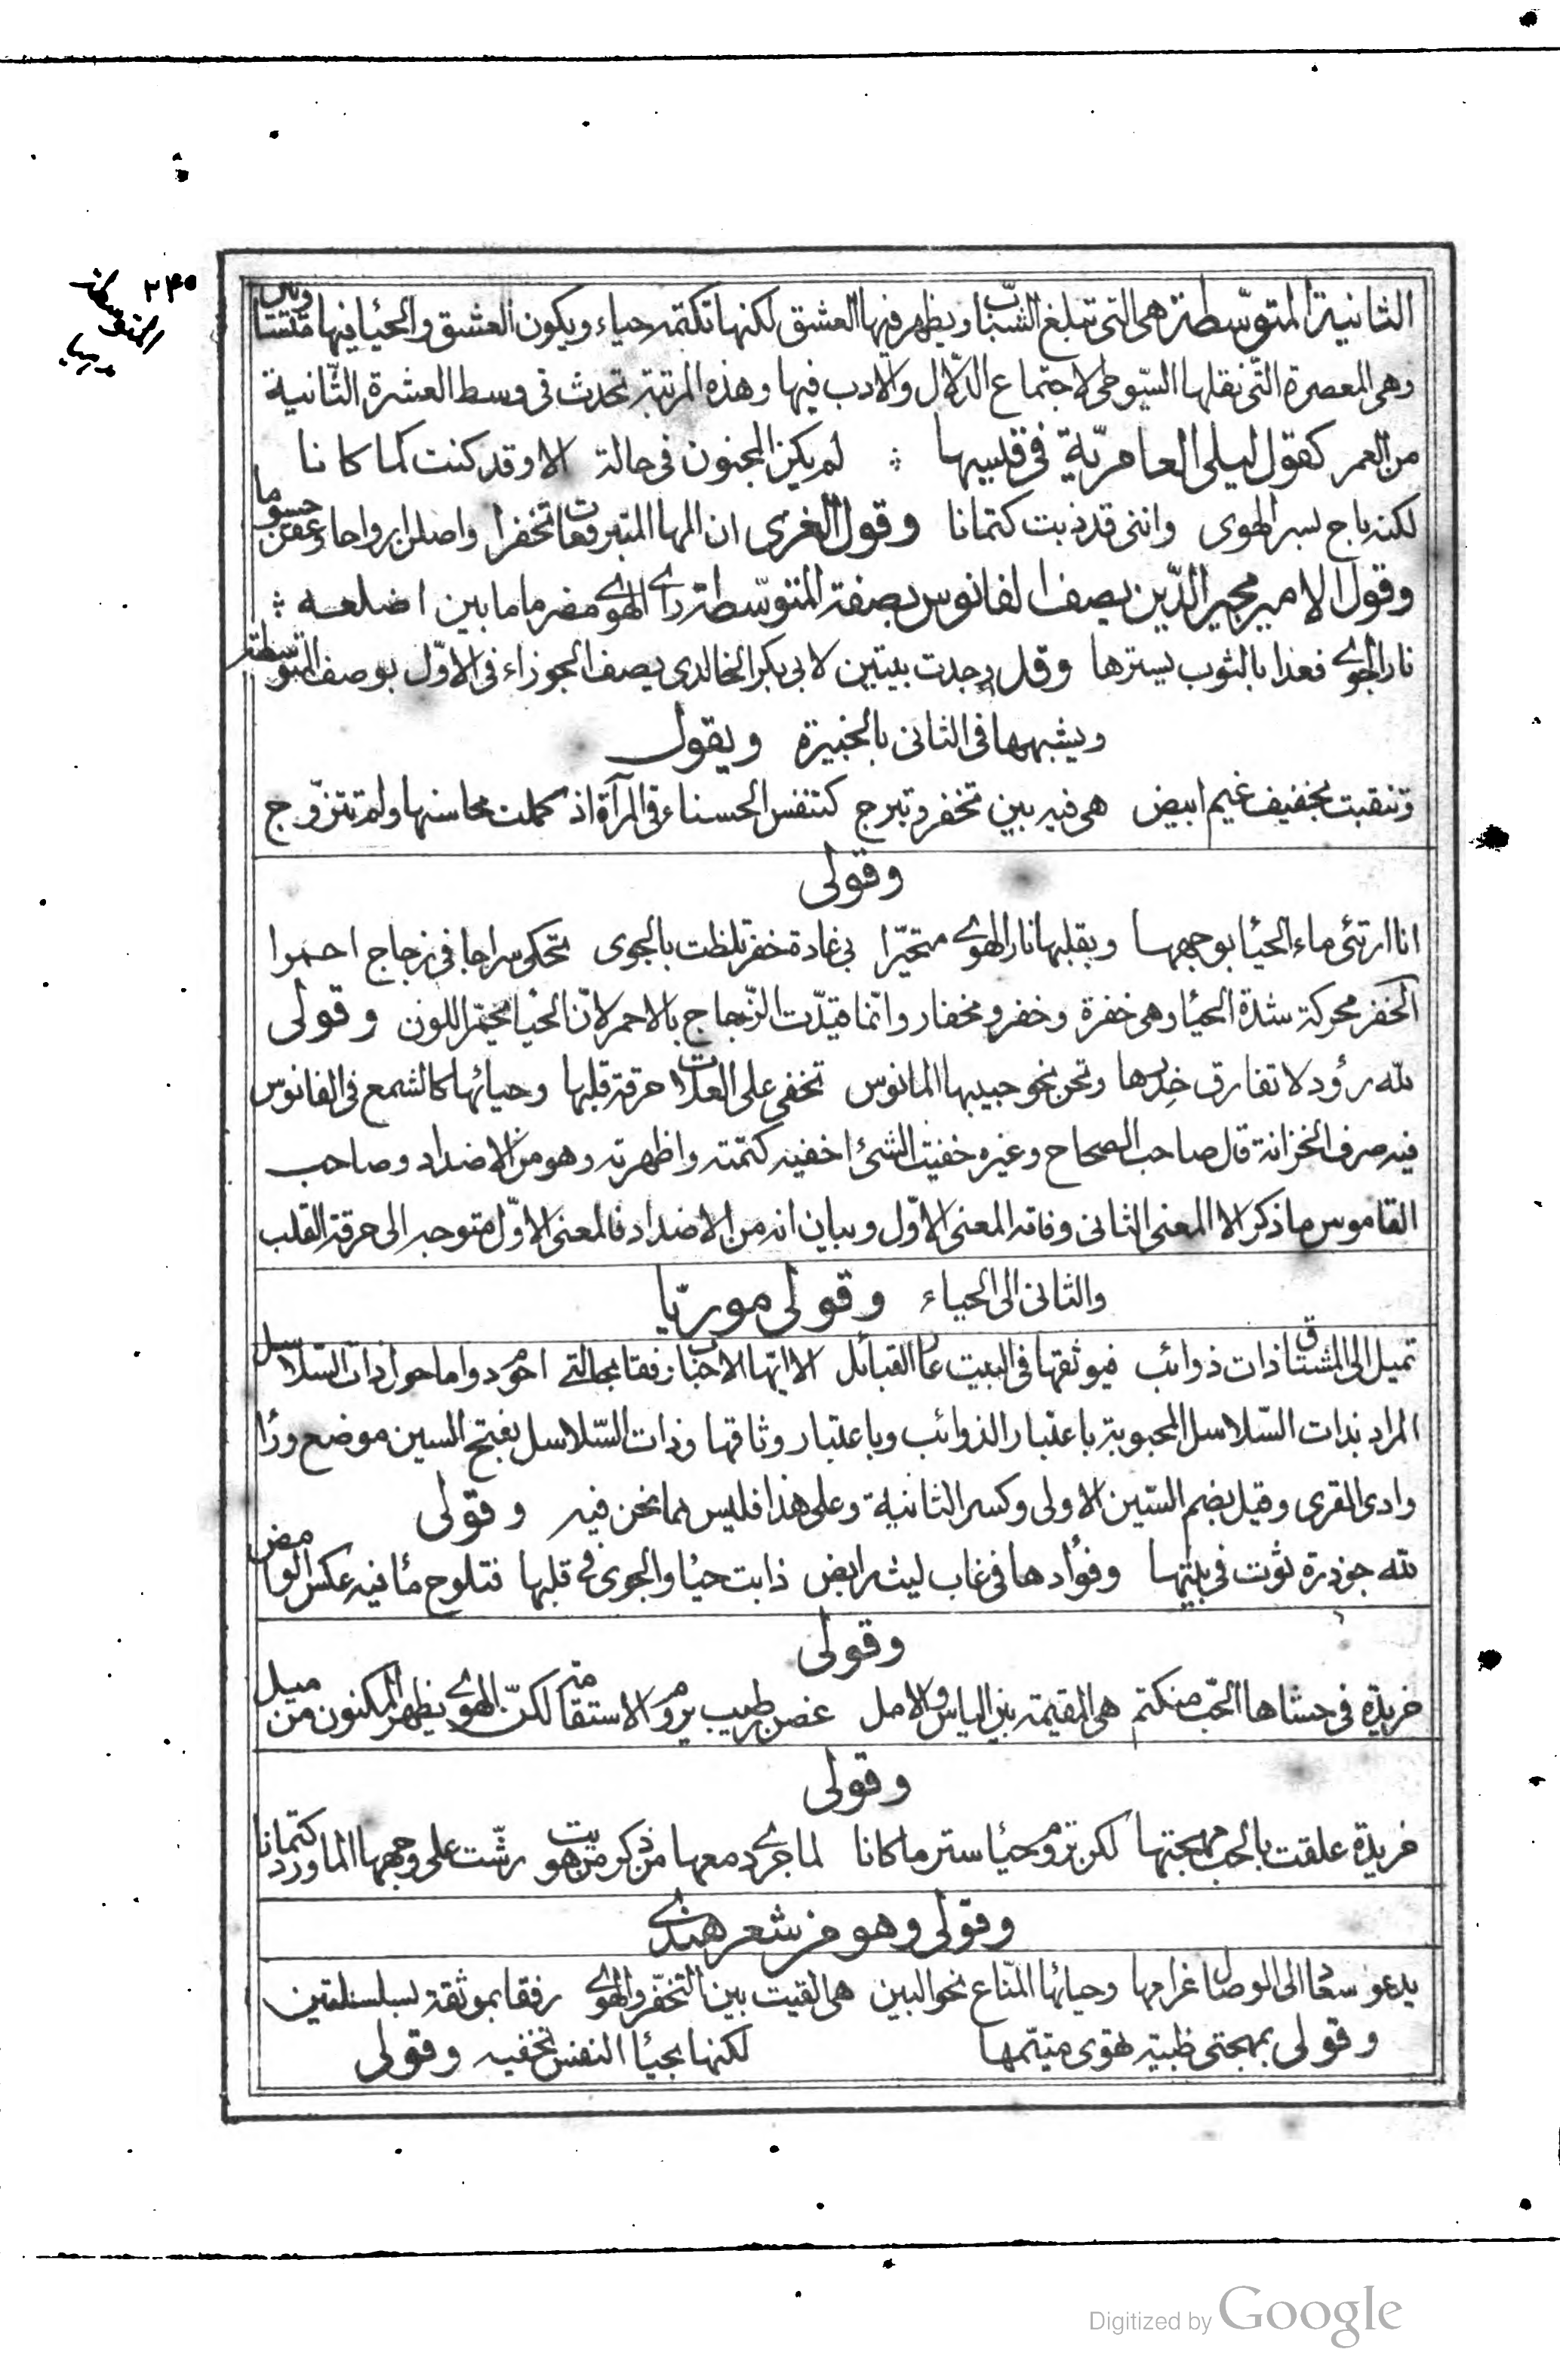 ٢٤٥
الثانية المتوسّطة هى التى تبلغ الشباب ويظهر فيها العشق لكنها تكتمه حياء ويكون العشق والحياء فيها متساويين
وهى المعصرة التّى نقلها السّيوطى لاجتماع الدّلال والادب فيها وهذه المرتبة تحدث فى وسط العشرة الثّانية
من العمر كقول ليلى العامريّة فى قلبيها ؞ لم يكن المجنون فى حالة الا وقد كنت كما كانا
لكنه باح بسر الهوى واننى قد ذبت كتمانا وقول الغزى ان المها المتبرقعات تخفرا واصلن ارواحا وعفن جسوما
وقول الامير مجير الدّين يصف الفانوس بصفة المتوسّطة راى الهوى مضرما ما بين اضلعه ؞
نار الجوى فغدا بالثوب يسترها وقد وجدت بيتين لابى بكر الخالدى يصف الجوزاء فى الاوّل بوصف المتوسطة
ويشبهها فى الثانى بالخبيرة ويقول
وتنقبت بخفيف غيم ابيض هى فيه بين تخفر وتبرج كتنفس الحسناء فى المرآة اذ كملت محاسنها ولم تتزوّج
وقولى
انا ارتئى ماء الحيا بوجهها وبقلبها نار الهوى متحيّرا بى غادة خفر تلظت بالجوى تحكى سراجا فى زجاج احمرا
الخفر محركة شدة الحياء وهى خفرة وخفر ومخفار وانّما قيدّت الزّجاج بالاحمر لانّ الحياء يحمّر اللون وقولى
لله رؤد لا تفارق خدرها وتحن نحو حبيبها المانوس تخفى على العلات حرقة قلبها وحيائها كالشمع فى الفانوس
فيه صرف الخزانة قال صاحب الصحاح وغيره خفيت الشئ اخفيه كتمته واظهرته وهو من الاضداد وصاحب
القاموس ما ذكر الا المعنى الثانى وفاته المعنى الاوّل وبيان انه من الاضداد فالمعنى الاوّل متوجه الى حرقة القلب
والثانى الى الحياء وقولى موريّا
تميل الى المشتاق ذات ذوائب فيوثقها فى البيت عار القبائل الا ايّها الاحباب رفقا بحالتى احوم دواما حول ذات السّلاسل
المراد بذات السّلاسل المحبوبة باعتبار الذوائب وباعتبار وثاقها وذات السّلاسل بفتح السين موضع وراء
وادى القرى وقيل بضم السّين الاولى وكسر الثانية وعلى هذا فليس مما نحن فيه وقولى
لله جؤذرة ثوت فى بيتها وفؤادها فى غاب ليث رابض ذابت حياء والجوى فى قلبها فتلوح ماء فيه عكس الوامض
وقولى
خريدة فى حشاها الحّب منكتم هى المقيمة بين الياس والامل غصن رطيب يروم الاستقامة لكنّ الهوى يظهر المكنون من ميل
وقولى
خريدة علقت بالحب مهجتها لكن تروم حياء ستر ما كانا لما جرى دمعها من ذكر من هويت رشّت على وجهها الماورد كتمانا
وقولى وهو من شعر هندى
يدعو سعادا الى الوصال غرامها وحيائها المنّاع نحو البين هى القيت بين التخفّر والهوى رفقا بموثقة بسلسلتين
وقولى بمهجتى ظبية تهوى متيّمها لكنها بحياء النفس تخفيه وقولى
Digitized by Google